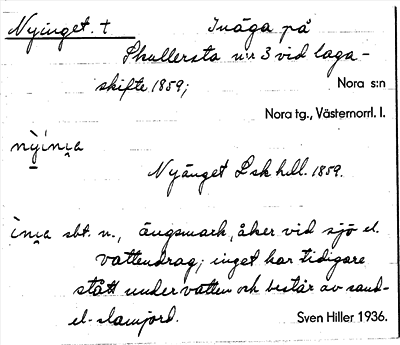 Nyinget. t Inäga på
Skullersta n:r 3 vid laga-
skifte 1859; Nora s:n
Nora tg., Västernorrl. l.
nỳi̇̀nɩa
Nyänget Lsk hdl. 1859.
ìnɩa sbt. n., ängsmark, åker vid sjö el.
vattendrag; inget har tidigare
stått under vatten och består av sand-
el. slamjord. Sven Hiller 1936.